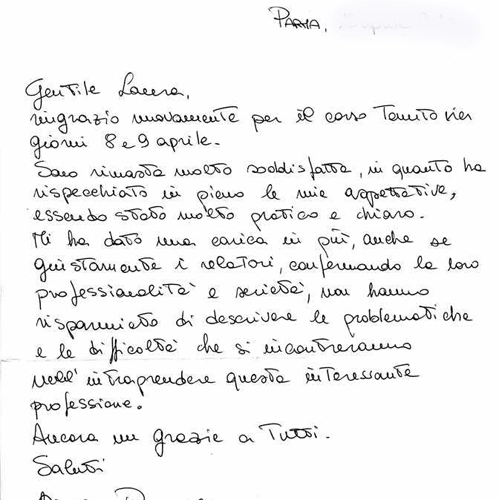 Parma,
Gentile Laura,
ringrazio nuovamente per il corso tenuto nei
giorni 8 e 9 aprile.
Sono rimasta molto soddisfatta, in quanto ha
rispecchiato in pieno le mie aspettative,
essendo stato molto pratico e chiaro.
Mi ha dato una carica in più, anche se
giustamente i relatori, confermando la loro
professionalità e serietà, non hanno
risparmiato di descrivere le problematiche
e le difficoltà che si incontreranno
nell'intraprendere questa interessante
professione.
Ancora un grazie a Tutti.
Saluti